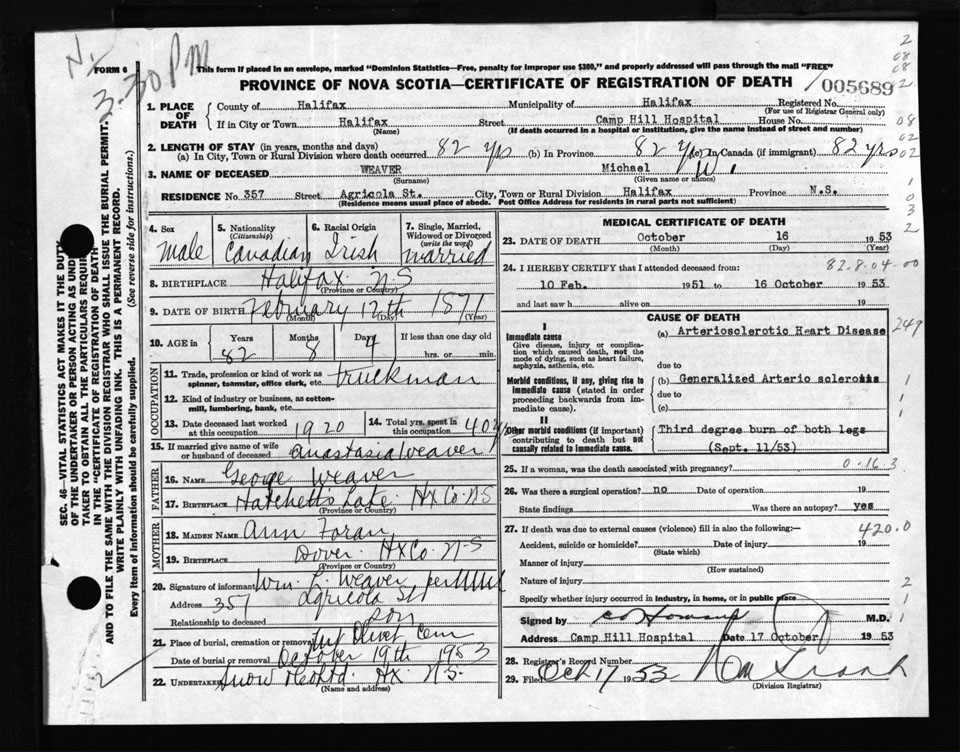 N.
3.30 PM
FORM 6
This form if placed in an envelope, marked "Dominion Statistics—Free, penalty for improper use $300," and properly addressed will pass through the mail "FREE"
PROVINCE OF NOVA SCOTIA—CERTIFICATE OF REGISTRATION OF DEATH
005689
1. PLACE OF DEATH
County of Halifax Municipality of Halifax Registered No.
(For use of Registrar General only)
If in City or Town Halifax Street Camp Hill Hospital House No.
(Name) (If death occurred in a hospital or institution, give the name instead of street and number)
2. LENGTH OF STAY (in years, months and days)
(a) In City, Town or Rural Division where death occurred 82 yrs (b) In Province 82 yrs (c) In Canada (if immigrant) 82 yrs
3. NAME OF DECEASED WEAVER Michael W.
(Surname) (Given name or names)
RESIDENCE No. 357 Street Agricola St. City, Town or Rural Division Halifax Province N.S.
(Residence means usual place of abode. Post Office Address for residents in rural parts not sufficient)
4. Sex
Male
5. Nationality
(Citizenship)
Canadian
6. Racial Origin
Irish
7. Single, Married, Widowed or Divorced
(write the word)
Married
8. BIRTHPLACE Halifax N S
(Province or Country)
9. DATE OF BIRTH February 12th 1871
(Month) (Day) (Year)
10. AGE in Years Months Days If less than one day old
82 8 4 hrs. or min.
OCCUPATION
11. Trade, profession or kind of work as spinner, teamster, office clerk, etc. Truckman
12. Kind of industry or business, as cotton-mill, lumbering, bank, etc.
13. Date deceased last worked at this occupation 1920
14. Total yrs. spent in this occupation 40 yrs
15. If married give name of wife or husband of deceased Anastasia Weaver
FATHER
16. Name George Weaver
17. Birthplace Hatchetts Lake Hx Co. N S
(Province or Country)
MOTHER
18. Maiden Name Ann Foran
19. Birthplace Dover Hx Co. N-S
(Province or Country)
20. Signature of informant Wm. L. Weaver per
Address 357 Agricola St
Relationship to deceased son
21. Place of burial, cremation or removal Mt Olivet Cem
Date of burial or removal October 19th 1953
22. Undertaker Snow Hx. N.S.
(Name and address)
MEDICAL CERTIFICATE OF DEATH
23. DATE OF DEATH October 16 1953
(Month) (Day) (Year)
82.8.04-00
24. I HEREBY CERTIFY that I attended deceased from:
10 Feb. 1951 to 16 October 1953
and last saw h alive on 19
CAUSE OF DEATH
I
Immediate cause
Give disease, injury or complication which caused death, not the mode of dying, such as heart failure, asphyxia, asthenia, etc.
(a) Arteriosclerotic Heart Disease
due to
Morbid conditions, if any, giving rise to immediate cause (stated in order proceeding backwards from immediate cause).
(b) Generalized Arterio sclerosis
due to
(c)
II
Other morbid conditions (if important) contributing to death but not causally related to immediate cause.
Third degree burn of both legs
(Sept. 11/53)
25. If a woman, was the death associated with pregnancy?
0-16-3
26. Was there a surgical operation? no Date of operation 19
State findings Was there an autopsy? yes
27. If death was due to external causes (violence) fill in also the following:—
420.0
Accident, suicide or homicide? Date of injury 19
(State which)
Manner of injury
(How sustained)
Nature of injury
Specify whether injury occurred in industry, in home, or in public place
Signed by M.D.
Address Camp Hill Hospital Date 17 October 1953
28. Registrar's Record Number
29. Filed Oct 17 1953
(Division Registrar)
SEC. 46—VITAL STATISTICS ACT MAKES IT THE DUTY
OF THE UNDERTAKER OR PERSON ACTING AS UND
TAKER TO OBTAIN ALL THE PARTICULARS REQUIR
IN THE "CERTIFICATE OF REGISTRATION OF DEATH
AND TO FILE THE SAME WITH THE DIVISION REGISTRAR WHO SHALL ISSUE THE BURIAL PERMIT.
WRITE PLAINLY WITH UNFADING INK. THIS IS A PERMANENT RECORD.
Every item of information should be carefully supplied. (See reverse side for instructions.)